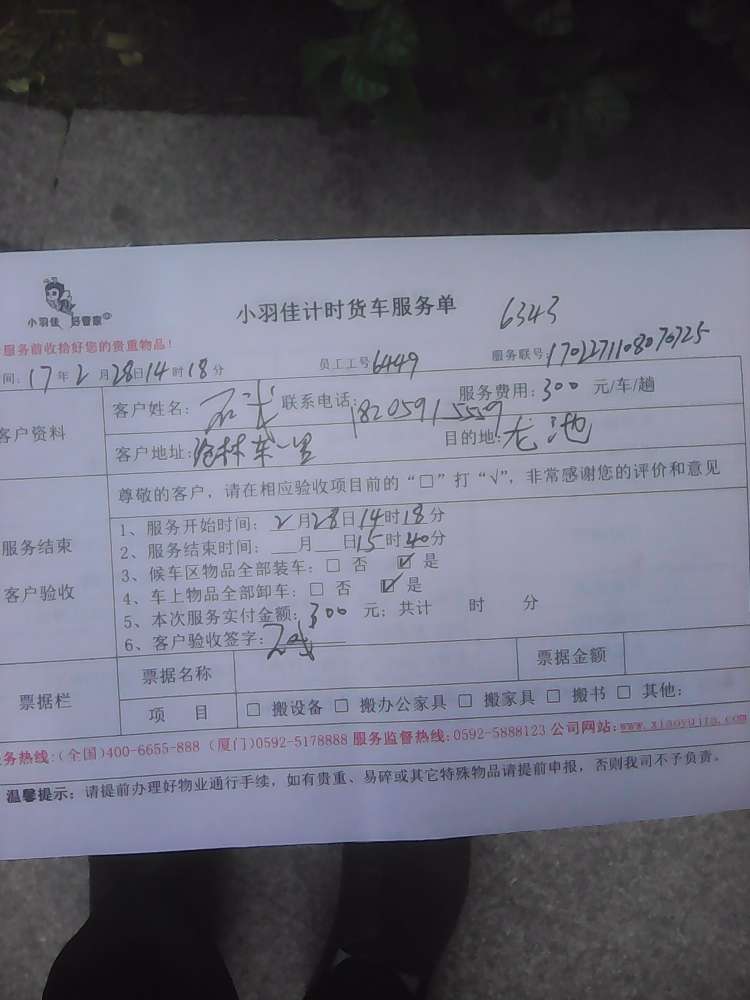 小羽佳 好管家
小羽佳计时货车服务单
6343
服务前收拾好您的贵重物品!
间: 17年2月28日14时18分
员工工号 6449
服务联号: 1702271108070725
客户资料
客户姓名:
联系电话: 18205915559
服务费用: 300 元/车/趟
客户地址:
目的地: 龙池
尊敬的客户,请在相应验收项目前的“□”打“√”,非常感谢您的评价和意见
服务结束
客户验收
1、服务开始时间: 2月28日14时18分
2、服务结束时间: __月__日15时40分
3、候车区物品全部装车: □ 否 ☑ 是
4、车上物品全部卸车: □ 否 ☑ 是
5、本次服务实付金额: 300 元; 共计 时 分
6、客户验收签字:
票据栏
票据名称
票据金额
项 目
□ 搬设备 □ 搬办公家具 □ 搬家具 □ 搬书 □ 其他:
务热线:(全国)400-6655-888 (厦门)0592-5178888 服务监督热线:0592-5888123 公司网站:www.xiaoyujia.com
温馨提示: 请提前办理好物业通行手续,如有贵重、易碎或其它特殊物品请提前申报,否则我司不予负责。